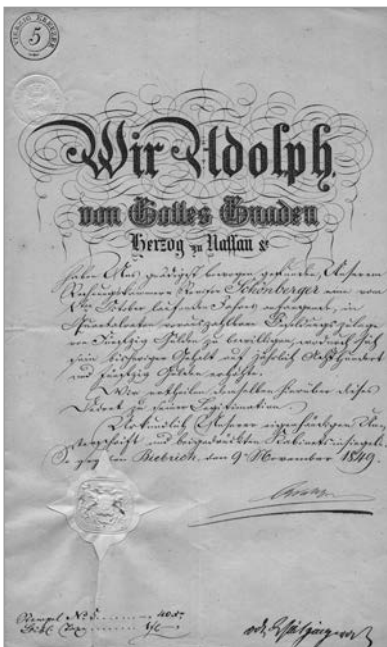 VIERZIG KREUZER
5
Wir Adolph.
von Gottes Gnaden
Herzog zu Nassau &c
haben Uns gnädigst bewogen gefunden, Unserem
Rechnungskammer Schönberger eine vom
1ten October laufenden Jahres anfangende, in
Quartalraten vorauszahlbare Besoldungszulage
von Fünfzig Gulden zu bewilligen, wodurch sich
sein bisheriger Gehalt auf jährlich Achthundert
und fünfzig Gulden erhöht.
Wir ertheilen demselben hierüber dieses
Decret zu seiner Legitimation.
Urkundlich Unserer eigenhändigen Un-
terschrift und beigedruckten Kabinetsinsiegels.
So gegeben Biebrich, den 9. November 1849.
Adolph
Stempel No 5